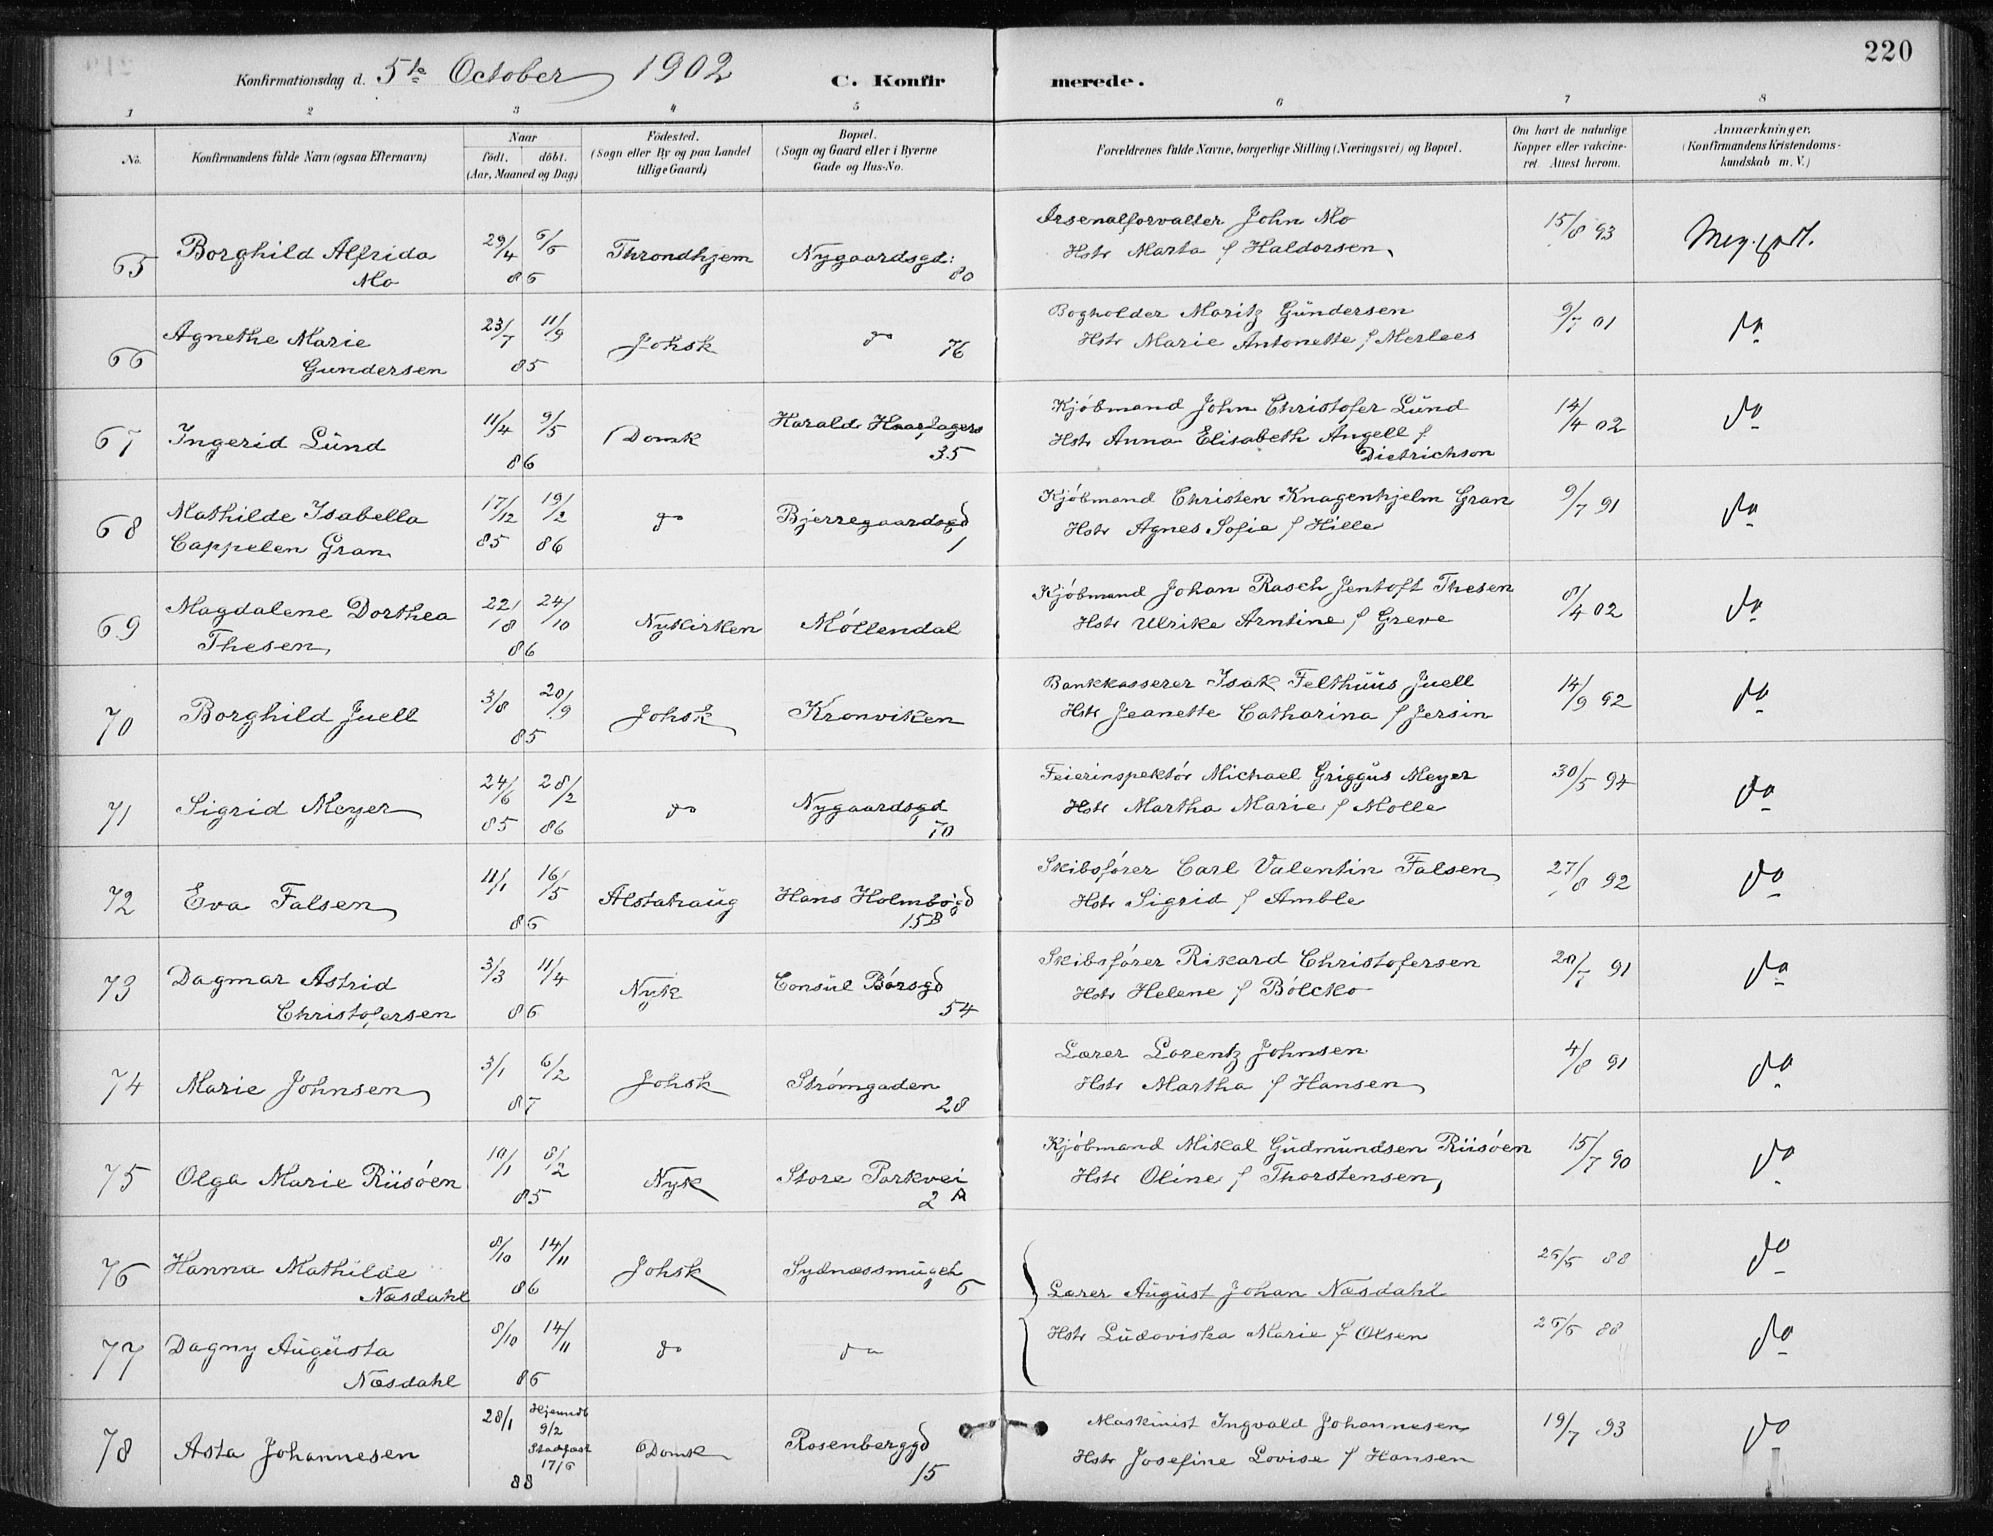 220
Konfirmationsdag d. 5te October 1902
C. Konfirmerede.
1 2 3 4 5 6 7 8
No.
Konfirmandens fulde Navn (ogsaa Efternavn)
Naar
født. døbt.
(Aar, Maaned og Dag)
Fødested.
(Sogn eller By og paa Landet
tillige Gaard)
Bopæl.
(Sogn og Gaard eller i Byerne
Gade og Hus-No.
Forældrenes fulde Navne, borgerlige Stilling (Næringsvei) og Bopæl.
Om havt de naturlige
Kopper eller vakcine-
ret. Attest herom.
Anmærkninger.
(Konfirmandens Kristendoms-
kundskab m. V.)
65 Borghild Alfrida 29/4 6/6 Throndhjem Nygaardsgd: Arsenalforvalter John Mo 15/8 93 Meg. godt.
Mo 86 80 Hstr Marta f Haldorsen
66 Agnethe Marie 23/7 11/9 Johsk do 76 Bogholder Moritz Gundersen 9/7 01 do
Gundersen 85 Hstr Marie Antonette f Merlees
67 Ingerid Lund 11/4 9/5 Domk Harald Haarfagers Kjøbmand John Christofer Lund 14/4 02 do
86 35 Hstr Anna Elisabeth Angell f
Dietrichson
68 Mathilde Isabella 17/12 19/2 do Bjerregaardsgd Kjøbmand Christen Knagenhjelm Gran 9/7 91 do
Cappelen Gran 85 86 1 Hstr Agnes Sofie f Hille
69 Magdalene Dorthea 22/8 24/10 Nykirken Møllendal Kjøbmand Johan Rasch Jentoft Thesen 8/4 02 do
Thesen 86 Hstr Ulrike Arntine f Greve
70 Borghild Juell 3/8 20/9 Johsk Kronviken Bankkasserer Isak Felthuus Juell 14/9 92 do
85 Hstr Jeanette Catharina f Jersin
71 Sigrid Meyer 24/6 28/2 do Nygaardsgd Feierinspektør Michael Griggus Meyer 30/5 94 do
85 86 70 Hstr Martha Marie f Molle
72 Eva Falsen 11/1 16/5 Alstahaug Hans Holmbogd Skibsfører Carl Valentin Falsen 27/8 92 do
86 15B Hstr Sigrid f Amble
73 Dagmar Astrid 3/3 11/4 Nyk Consul Børsgd Skibsfører Rikard Christofersen 20/7 91 do
Christofersen 86 54 Hstr Helene f Bølcko
74 Marie Johnsen 3/1 6/2 Johsk Strømgaden Lærer Lorentz Johnsen 4/8 91 do
87 28 Hstr Martha f Hansen
75 Olga Marie Riisøen 10/1 8/2 Nyk Store Parkvei Kjøbmand Mikal Gudmundsen Riisøen 15/7 90 do
85 2 A Hstr Oline f Thorstensen
76 Hanna Mathilde 8/10 14/11 Johsk Sydnæssmuget 26/5 88 do
Næsdahl 86 6 Lærer August Johan Næsdahl
77 Dagny Augusta 8/10 14/11 do do Hstr Ludoviska Marie f Olsen 26/5 88 do
Næsdahl 86
78 Asta Johannesen 28/1 Hjemdb 9/2 Stadfæst 17/6 Domk Rosenberggd Maskinist Ingvald Johannesen 19/7 93 do
88 15 Hstr Josefine Lovise f Hansen